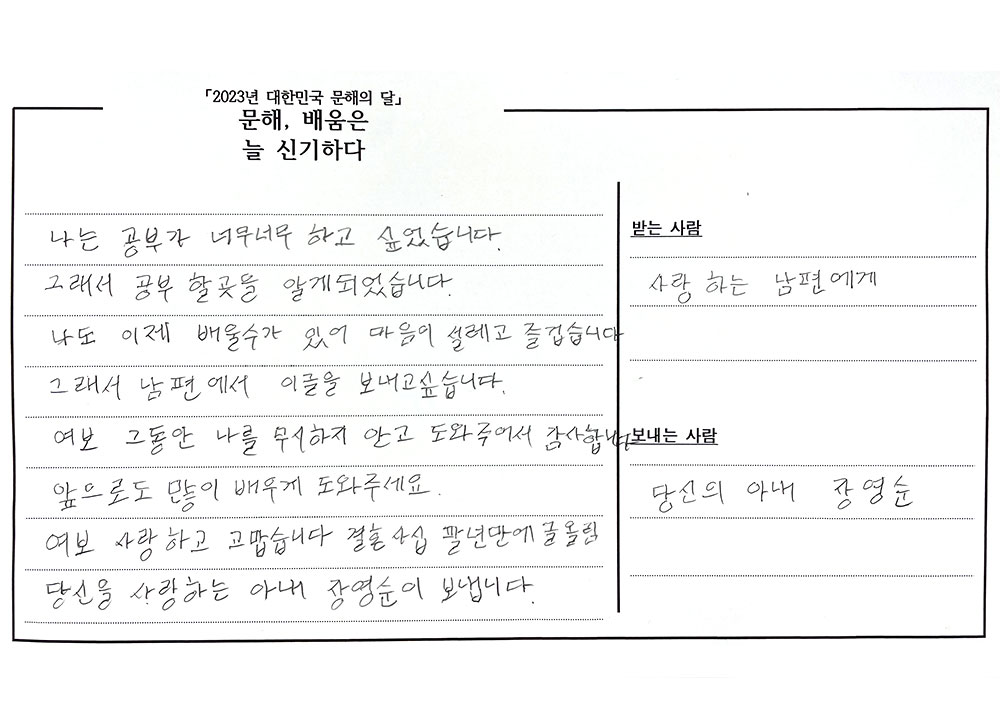 「2023년 대한민국 문해의 달」
문해, 배움은
늘 신기하다
나는 공부가 너무너무 하고 싶었습니다.
그래서 공부 할곳을 알게되었습니다.
나도 이제 배울수가 있어 마음이 설레고 즐겁습니다
그래서 남편에서 이글을 보내고싶습니다.
여보 그동안 나를 무시하지 안고 도와주어서 감사합니다
앞으로도 많이 배우게 도와주세요.
여보 사랑하고 고맙습니다 결혼 사십 팔년만에 글올림
당신을 사랑하는 아내 장영순이 보냅니다.
받는 사람
사랑하는 남편에게
보내는 사람
당신의 아내 장영순